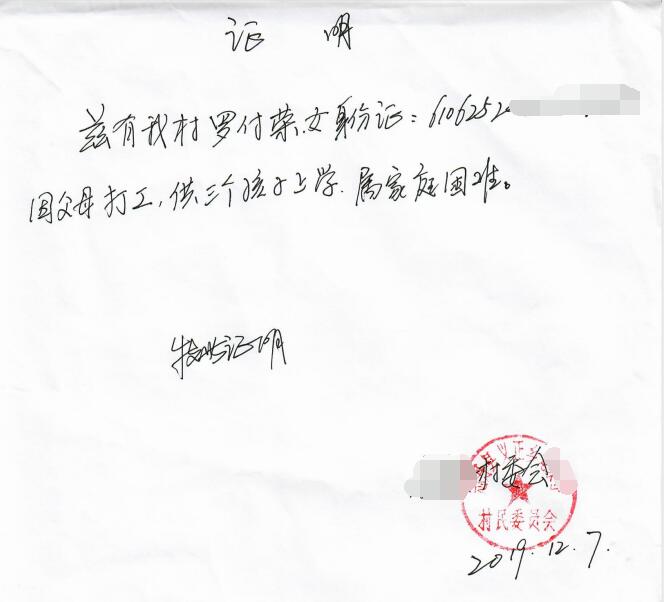 证 明
兹有我村罗付荣.女身份证：6106252
因父母打工,供三个孩子上学.属家庭困难。
特此证明
村委会
村民委员会
2019.12.7.